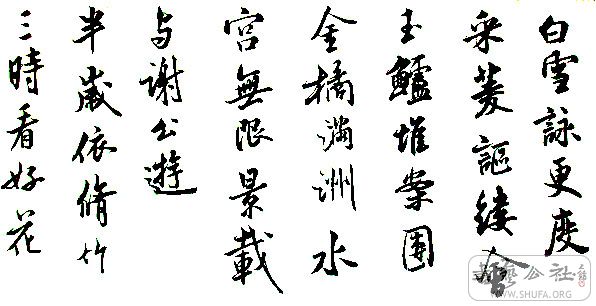 白雪詠更度
采菱謳縷
玉鱸堆案團
金橘滿洲水
宮無限景載
与謝公遊
半歲依脩竹
三時看好花
藝公社
WWW.SHUFA.ORG